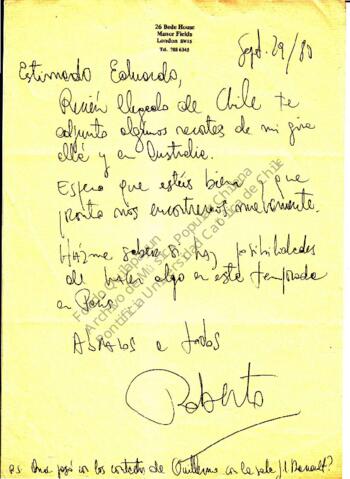 26 Bede House
Manor Fields
London SW15
Tel. 788 6345
Sept. 29/80
Estimado Eduardo,
Recién llegado de Chile te
adjunto algunos recortes de mi gira
allá y en Australia.
Espero que estéis bien y que
pronto nos encontremos nuevamente.
Házme saber si hay posibilidades
de hacer algo en esta temporada
en París.
Abrazos a todos
Roberto
P.S. Que pasó con los contactos de Guillermo con la sala J.L. Barrault?
Fondo Quilapayún
Archivo de Música Popular Chilena
Pontificia Universidad Católica de Chile